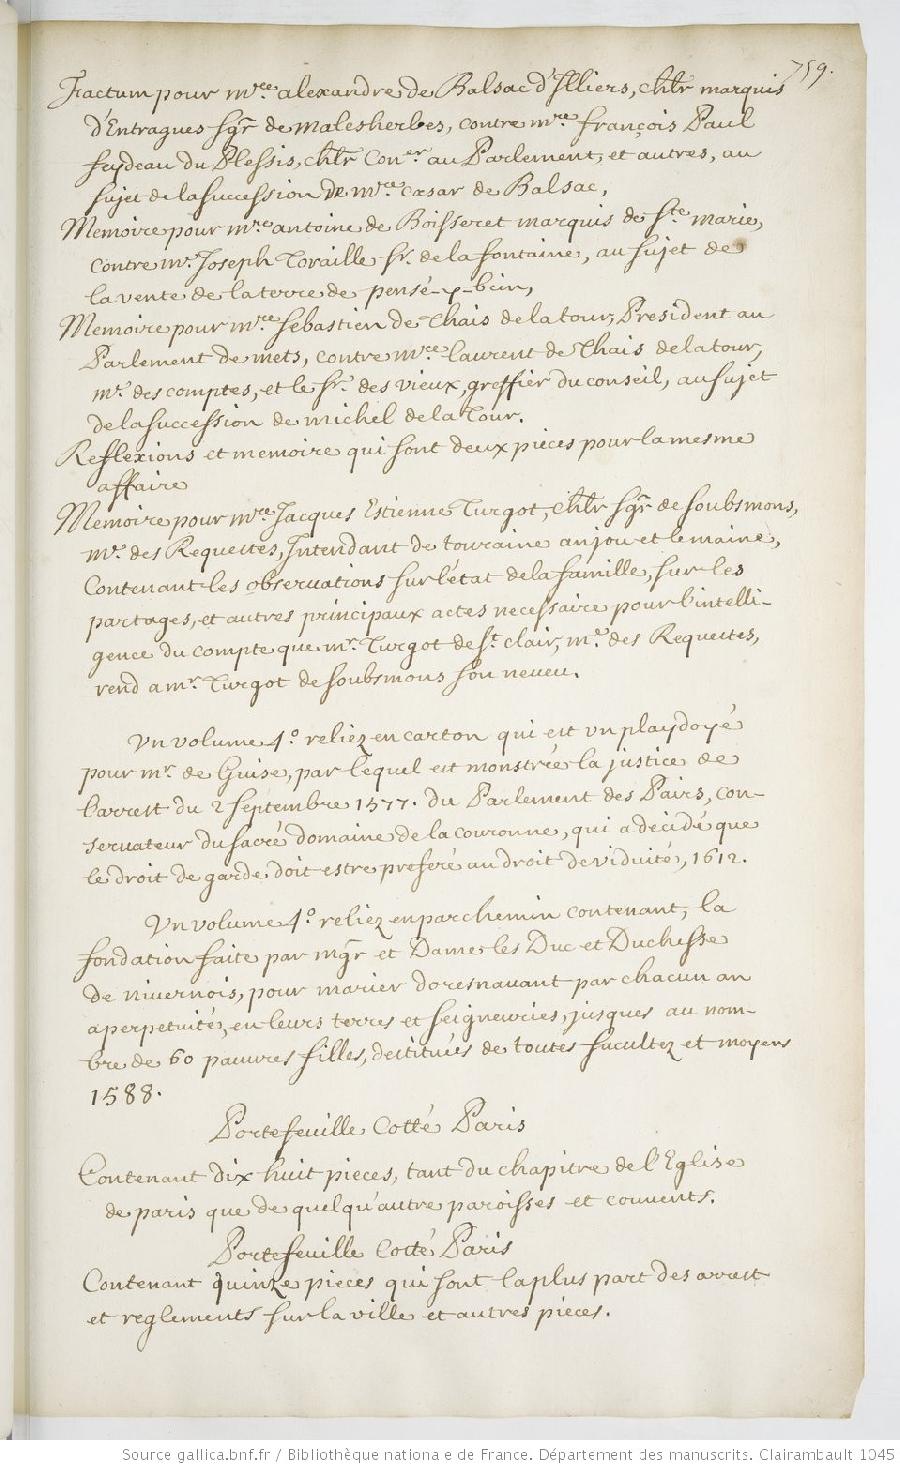 759.
Factum pour mre. alexandre de Balsac d'Illiers, chlr marquis
d'Entragues sgr de malesherbes, contre mre. françois Paul
feydeau du Plessis, chlr Coner au Parlement, et autres, au
sujet de la succession de mre. cæsar de Balsac,
Memoire pour mre. antoine de Boisseret marquis de ste marie,
contre mr. Joseph Toraille sr. de la fontaine, au sujet de
la vente de la terre de pensé-y-bien,
Memoire pour mre. sebastien de Thais de la tour, President au
Parlement de mets, contre mre. laurent de Thais de la tour,
me. des comptes, et le sr. des vieux, greffier du conseil, au sujet
de la succession de michel de la Tour.
Reflexions et memoire qui sont deux pieces pour la mesme
affaire
Memoire pour mre. Jacques Estienne Turgot, chlr sgr de soubsmons,
me. des Requestes, Intendant de touraine anjou et le maine,
Contenant les observations sur l'état de la famille, sur les
partages, et autres principaux actes necessaire pour l'intelli-
gence du compte que mr. Turgot de st. clair, me. des Requestes,
rend a mr. Turgot de soubsmons son neveu.
Vn volume 4.º reliez en carton qui est vn playdoyé
pour mr. de Guise, par lequel est monstrée la justice de
l'arrest du 2 septembre 1577. du Parlement des Pairs, con-
servateur du sacré domaine de la couronne, qui a décidé que
le droit de garde doit estre preferé au droit de viduité, 1612.
Vn volume 4.º reliez en parchemin contenant, la
fondation faite par mgr et Dame les Duc et Duchesse
de nivernois, pour marier doresnavant par chacun an
a perpetuité, en leurs terres et seigneuries, jusques au nom-
bre de 60 pauvres filles, destituées de toutes facultez et moyens
1588.
Portefeuille Cotté Paris
Contenant dix huit pieces, tant du chapitre de l'Eglise
de paris que de quelqu'autre paroisses et couvents.
Portefeuille Cotté Paris
Contenant quinze pieces qui sont la plus part des arrest
et reglements sur la ville et autres pieces.
Source gallica.bnf.fr / Bibliothèque nationale de France. Département des manuscrits. Clairambault 1045